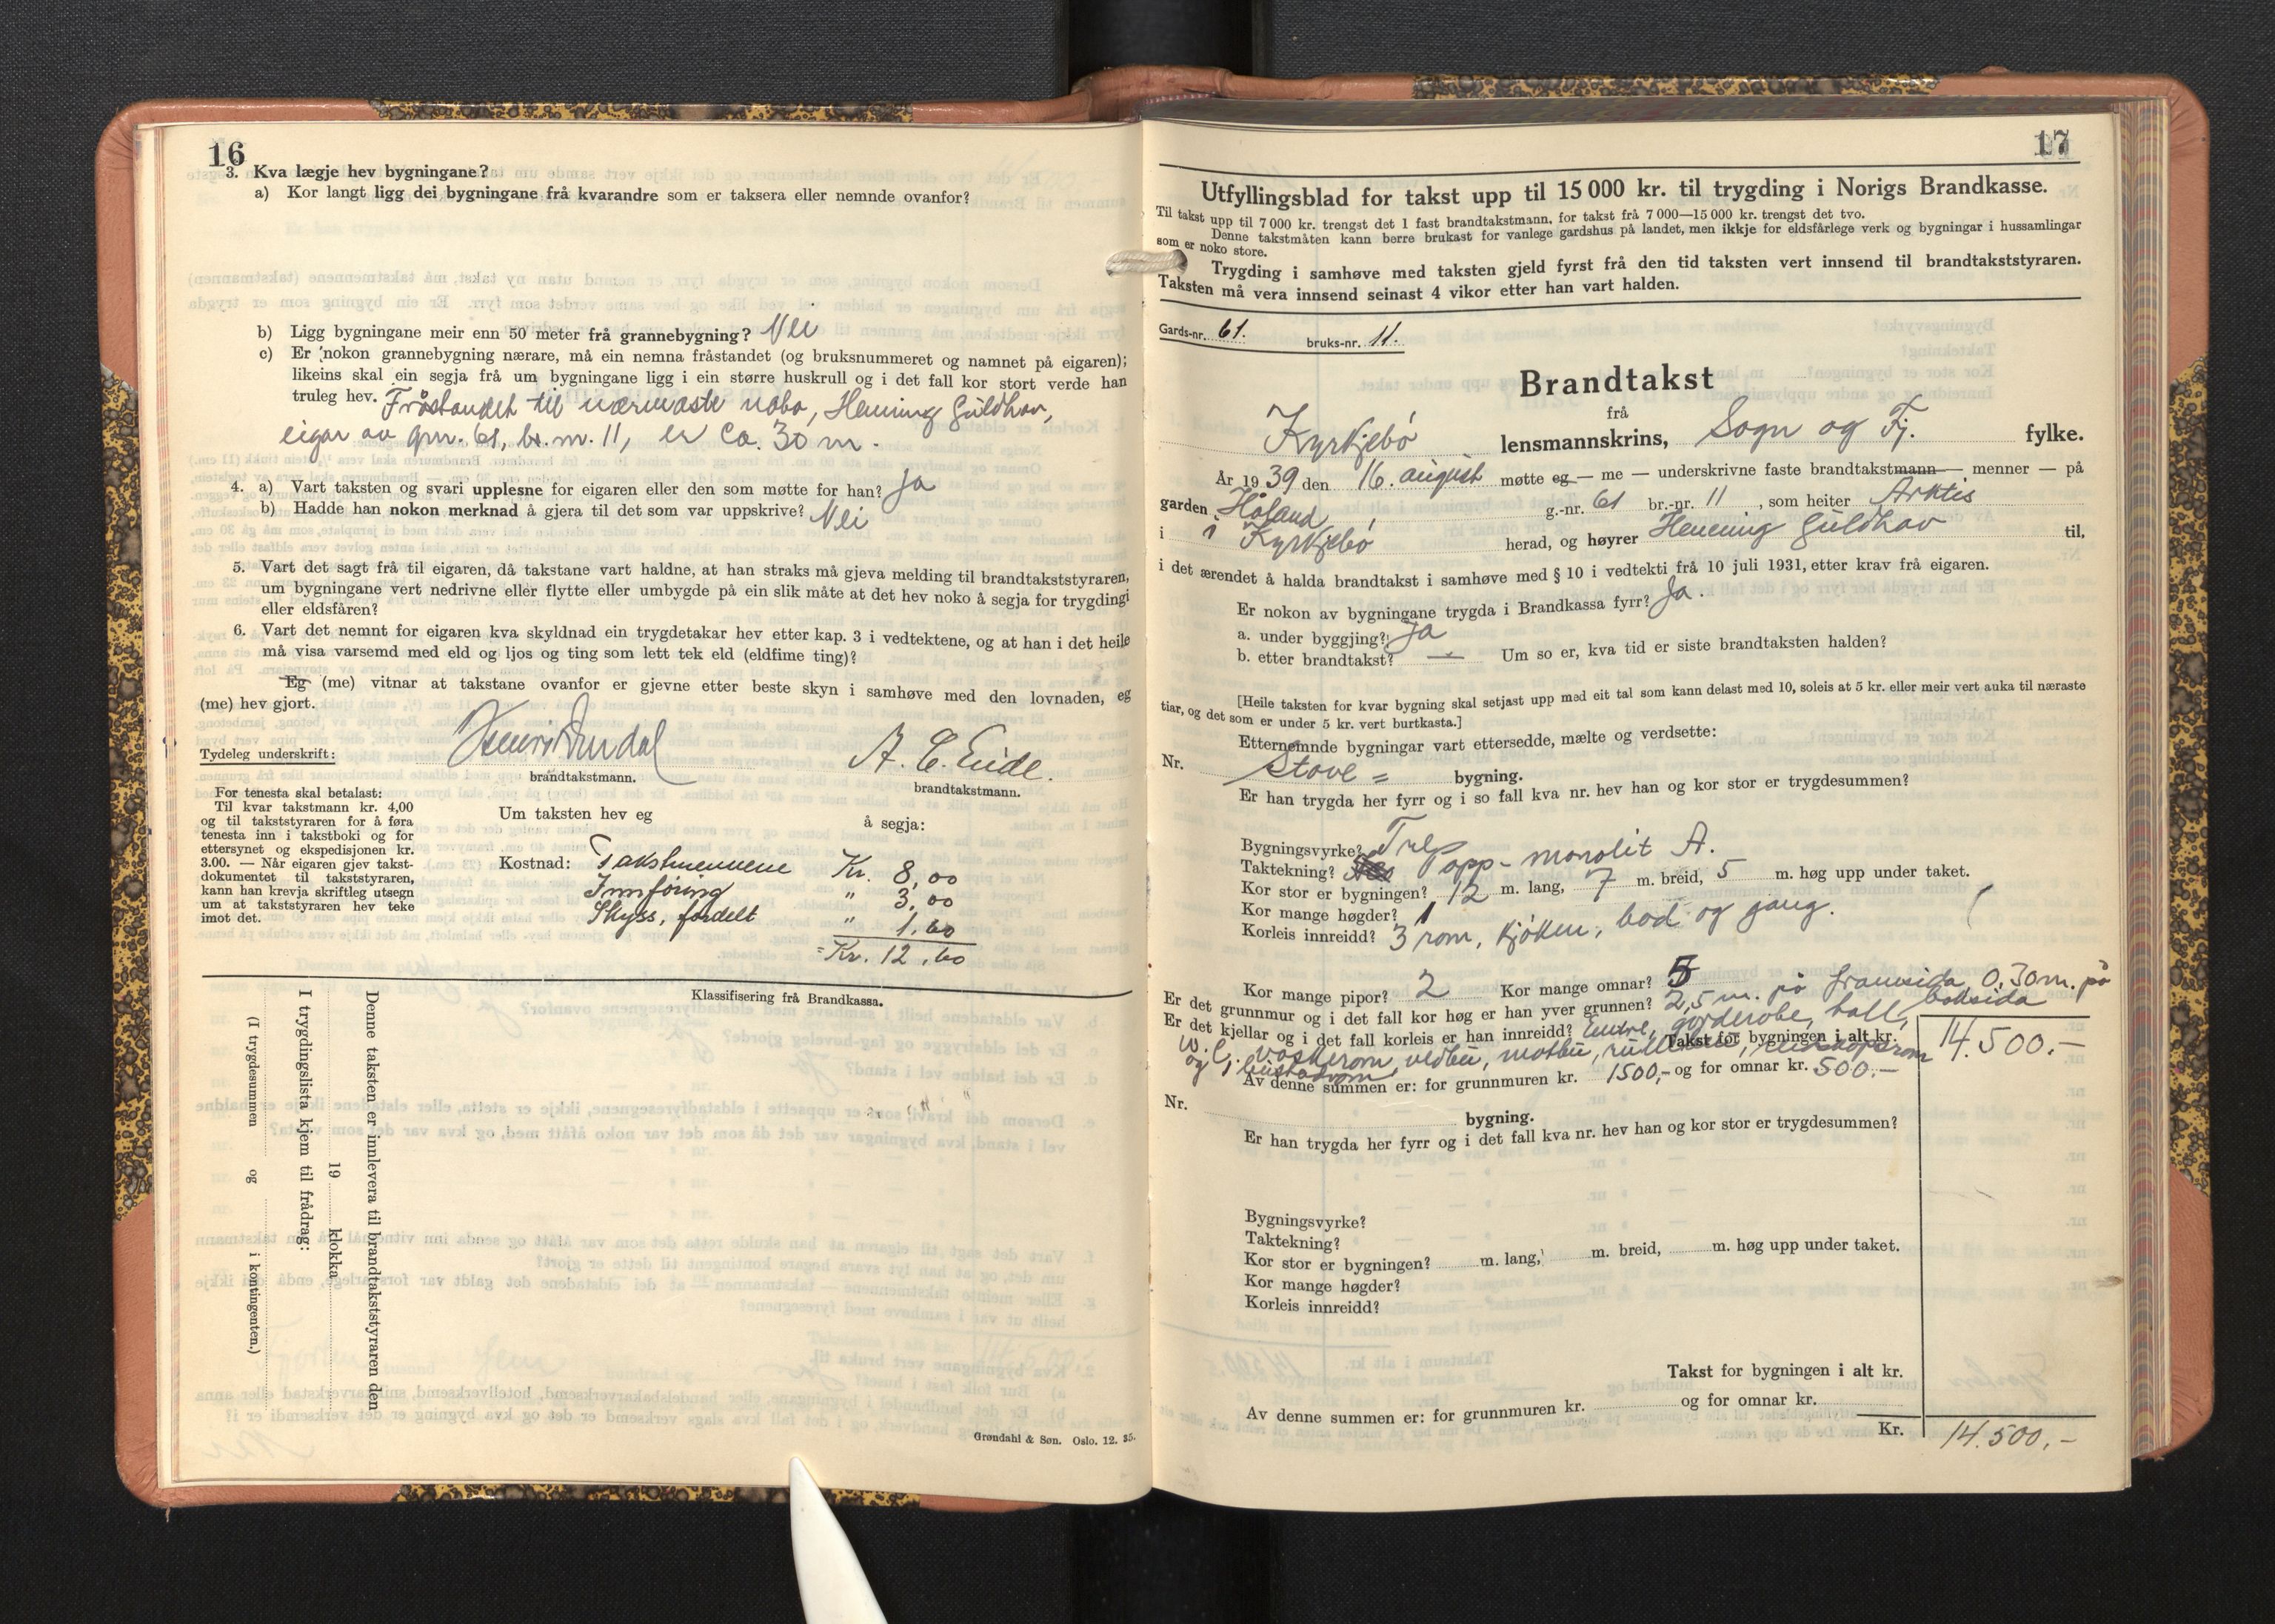 16
3. Kva lægje hev bygningane?
a) Kor langt ligg dei bygningane frå kvarandre som er taksera eller nemnde ovanfor?
b) Ligg bygningane meir enn 50 meter frå grannebygning? Nei
c) Er nokon grannebygning nærare, må ein nemna fråstandet (og bruksnummeret og namnet på eigaren);
likeins skal ein segja frå um bygningane ligg i ein større huskrull og i det fall kor stort verde han
truleg hev. Fråstandet til nærmaste nabo, Henning Guldhav,
eigar av gnr. 61, br. nr. 11, er ca. 30 m.
4. a) Vart taksten og svari upplesne for eigaren eller den som møtte for han? Ja
b) Hadde han nokon merknad å gjera til det som var uppskrive? Nei
5. Vart det sagt frå til eigaren, då takstane vart haldne, at han straks må gjeva melding til brandtakststyraren,
um bygningane vert nedrivne eller flytte eller umbygde på ein slik måte at det hev noko å segja for trygdingi
eller eldsfåren?
6. Vart det nemnt for eigaren kva skyldnad ein trygdetakar hev etter kap. 3 i vedtektene, og at han i det heile
må visa varsemd med eld og ljos og ting som lett tek eld (eldfime ting)?
Eg (me) vitnar at takstane ovanfor er gjevne etter beste skyn i samhøve med den lovnaden, eg
(me) hev gjort.
Tydeleg underskrift:
A. C. Eide.
brandtakstmann.
brandtakstmann.
For tenesta skal betalast:
Til kvar takstmann kr. 4,00
og til takststyraren for å føra
tenesta inn i takstboki og for
ettersynet og ekspedisjonen kr.
3.00. — Når eigaren gjev takst-
dokumentet til takststyraren,
kann han krevja skriftleg utsegn
um at takststyraren hev teke
imot det.
Um taksten hev eg å segja:
Kostnad: Takstmennene Kr. 8,00
Innføring " 3,00
Skyss, fordelt " 1,60
= Kr. 12,60
Klassifisering frå Brandkassa.
Denne taksten er innlevera til brandtakststyraren den
19 klokka
I trygdingslista kjem til frådrag:
(I trygdesummen og i kontingenten.)
Grøndahl & Søn. Oslo. 12. 35.
17
Utfyllingsblad for takst upp til 15 000 kr. til trygding i Norigs Brandkasse.
Til takst upp til 7 000 kr. trengst det 1 fast brandtakstmann, for takst frå 7 000—15 000 kr. trengst det tvo.
Denne takstmåten kann berre brukast for vanlege gardshus på landet, men ikkje for eldsfårlege verk og bygningar i hussamlingar
som er noko store.
Trygding i samhøve med taksten gjeld fyrst frå den tid taksten vert innsend til brandtakststyraren.
Taksten må vera innsend seinast 4 vikor etter han vart halden.
Gards-nr. 61. bruks-nr. 11.
Brandtakst
frå
Kyrkjebø lensmannskrins, Sogn og Fj. fylke.
År 1939 den 16. august møtte eg — me — underskrivne faste brandtakstmann — menner — på
garden Håland, g.-nr. 61 br.-nr. 11, som heiter Arktis
i i Kyrkjebø herad, og høyrer Henning Guldhav til,
i det ærendet å halda brandtakst i samhøve med § 10 i vedtekti frå 10 juli 1931, etter krav frå eigaren.
Er nokon av bygningane trygda i Brandkassa fyrr? Ja.
a. under byggjing? Ja
b. etter brandtakst? — Um so er, kva tid er siste brandtaksten halden?
[Heile taksten for kvar bygning skal setjast upp med eit tal som kann delast med 10, soleis at 5 kr. eller meir vert auka til næraste
tiar, og det som er under 5 kr. vert burtkasta.]
Etternemnde bygningar vart ettersedde, mælte og verdsette:
Nr. Stove = bygning.
Er han trygda her fyrr og i so fall kva nr. hev han og kor stor er trygdesummen?
Bygningsvyrke? Tre
Taktekning? Papp - monolit A.
Kor stor er bygningen? 12 m. lang, 7 m. breid, 5 m. høg upp under taket.
Kor mange høgder? 1
Korleis innreidd? 3 rom, kjøken, bod og gang.
Kor mange pipor? 2 Kor mange omnar? 5
Er det grunnmur og i det fall kor høg er han yver grunnen? 2,5 m. på framsida 0,30 m. på baksida
Er det kjellar og i det fall korleis er han innreidd? Entre, garderobe, hall,
W.C. vaskerom, vedbu, matbu,
og
Takst for bygningen i alt kr. 14.500.-
Av denne summen er: for grunnmuren kr. 1500,- og for omnar kr. 500.-
Nr. bygning.
Er han trygda her fyrr og i det fall kva nr. hev han og kor stor er trygdesummen?
Bygningsvyrke?
Taktekning?
Kor stor er bygningen? m. lang, m. breid, m. høg upp under taket.
Kor mange høgder?
Korleis innreidd?
Takst for bygningen i alt kr.
Av denne summen er: for grunnmuren kr. og for omnar kr.
Kr. 14.500,-